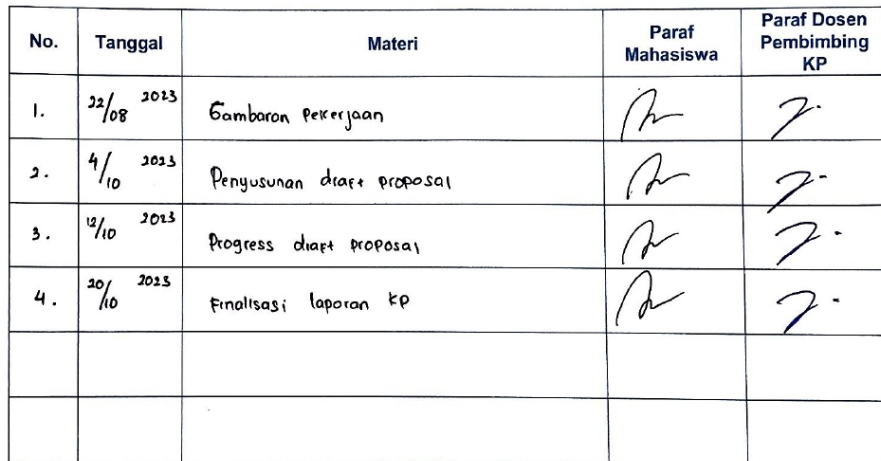 No. Tanggal Materi Paraf Mahasiswa Paraf Dosen Pembimbing KP
1. 22/08 2023 Gambaran Pekerjaan
2. 4/10 2023 Penyusunan draft proposal
3. 12/10 2023 Progress draft proposal
4. 20/10 2023 Finalisasi laporan KP